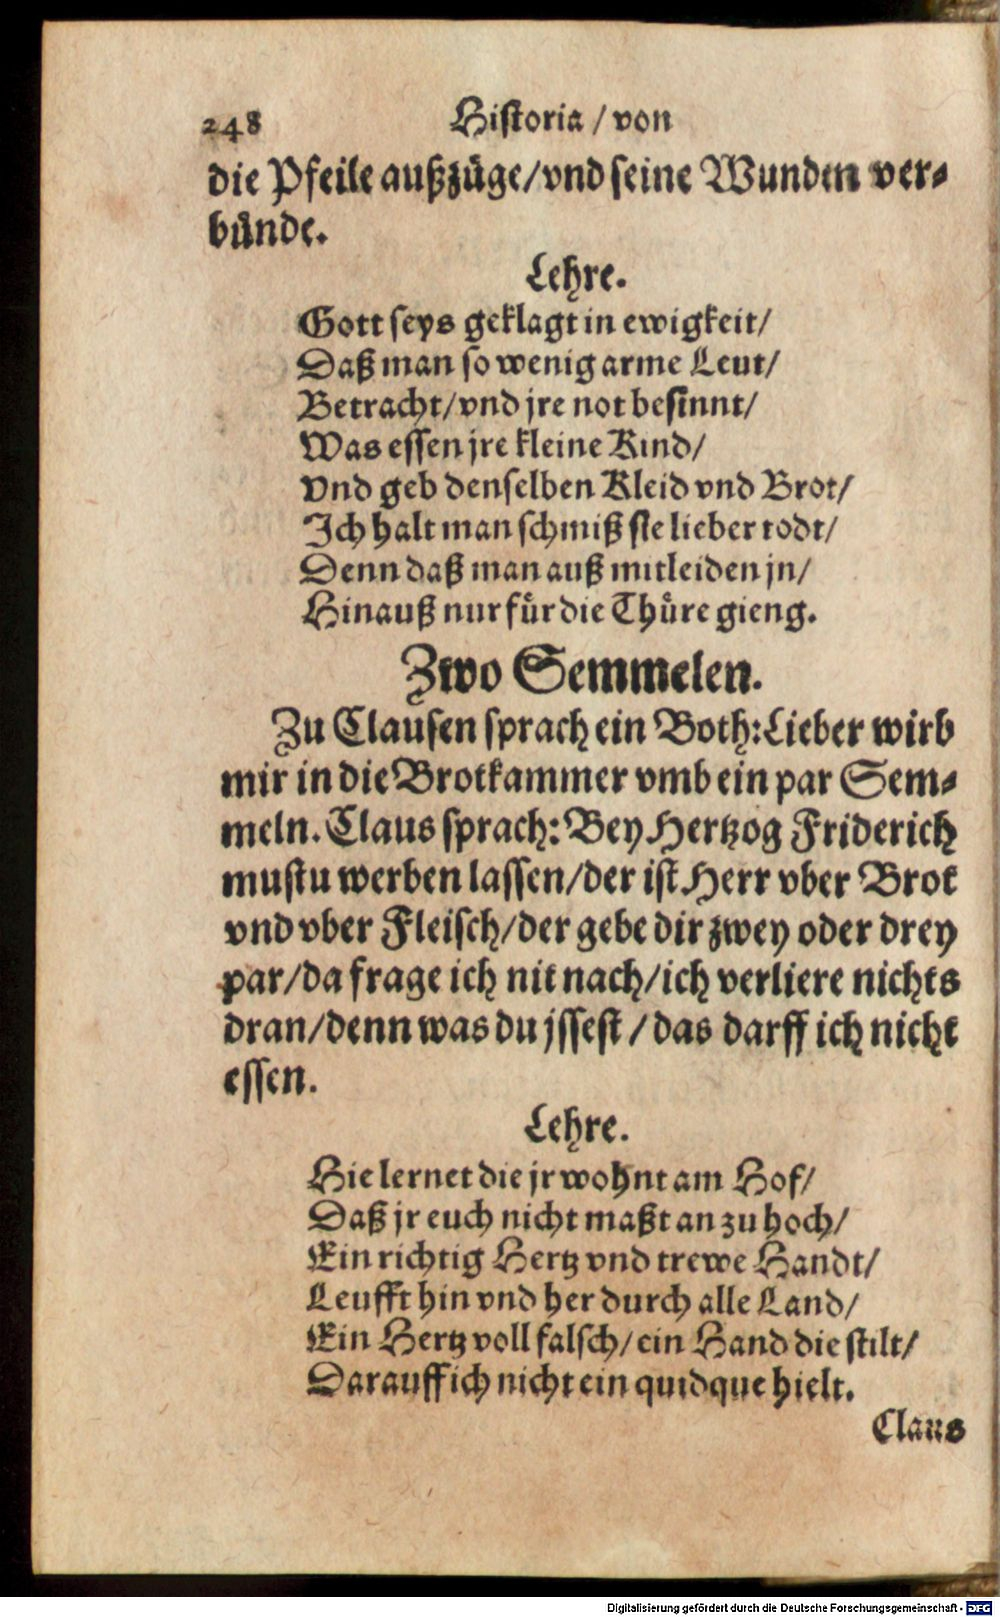 248 Historia / von
die Pfeile außzüge/vnd seine Wunden ver-
bünde.
Lehre.
Gott seys geklagt in ewigkeit/
Daß man so wenig arme Leut/
Betracht/vnd jre not besinnt/
Was essen jre kleine Kind/
Vnd geb denselben Kleid vnd Brot/
Ich halt man schmiß sie lieber todt/
Denn daß man auß mitleiden jn/
Hinauß nur für die Thüre gieng.
Zwo Semmelen.
Zu Clausen sprach ein Both: Lieber wirb
mir in die Brotkammer vmb ein par Sem-
meln. Claus sprach: Bey Hertzog Friderich
mustu werben lassen/der ist Herr vber Brot
vnd vber Fleisch/der gebe dir zwey oder drey
par/da frage ich nit nach/ich verliere nichts
dran/denn was du jssest / das darff ich nicht
essen.
Lehre.
Hie lernet die jr wohnt am Hof/
Daß jr euch nicht maßt an zu hoch/
Ein richtig Hertz vnd trewe Handt/
Leufft hin vnd her durch alle Land/
Ein Hertz voll falsch/ein Hand die stilt/
Darauff ich nicht ein quidque hielt.
Claus
Digitalisierung gefördert durch die Deutsche Forschungsgemeinschaft - DFG